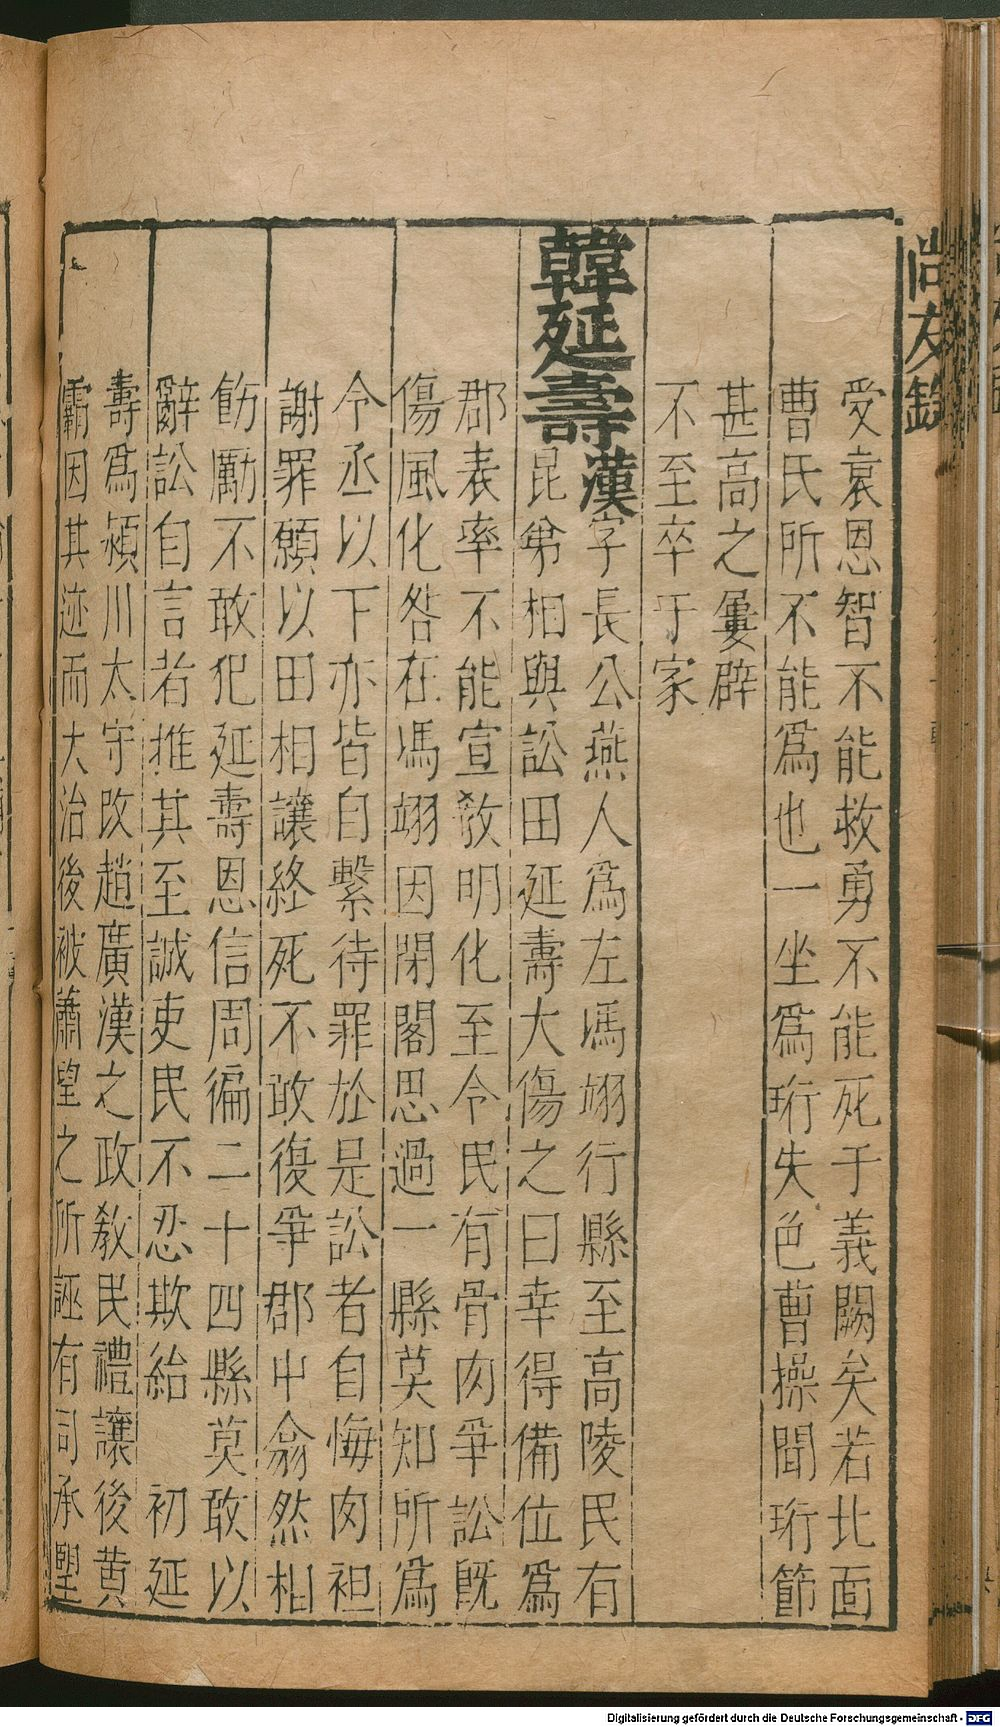 尚友錄
受袁恩智不能救勇不能死于義闕矣若北面
曹氏所不能爲也一坐爲珩失色曹操聞珩節
甚高之屢辟
不至卒于家
韓延壽
漢字長公燕人爲左馮翊行縣至高陵民有
昆弟相與訟田延壽大傷之曰幸得備位爲
郡表率不能宣敎明化至令民有骨肉爭訟既
傷風化咎在馮翊因閉閣思過一縣莫知所爲
令丞以下亦皆自繫待罪於是訟者自悔肉袒
謝罪願以田相讓終死不敢復爭郡中翕然相
飭勵不敢犯延壽恩信周徧二十四縣莫敢以
辭訟自言者推其至誠吏民不忍欺紿 初延
壽爲潁川太守改趙廣漢之政敎民禮讓後黃
霸因其迹而大治後被蕭望之所誣有司承望
Digitalisierung gefördert durch die Deutsche Forschungsgemeinschaft - DFG